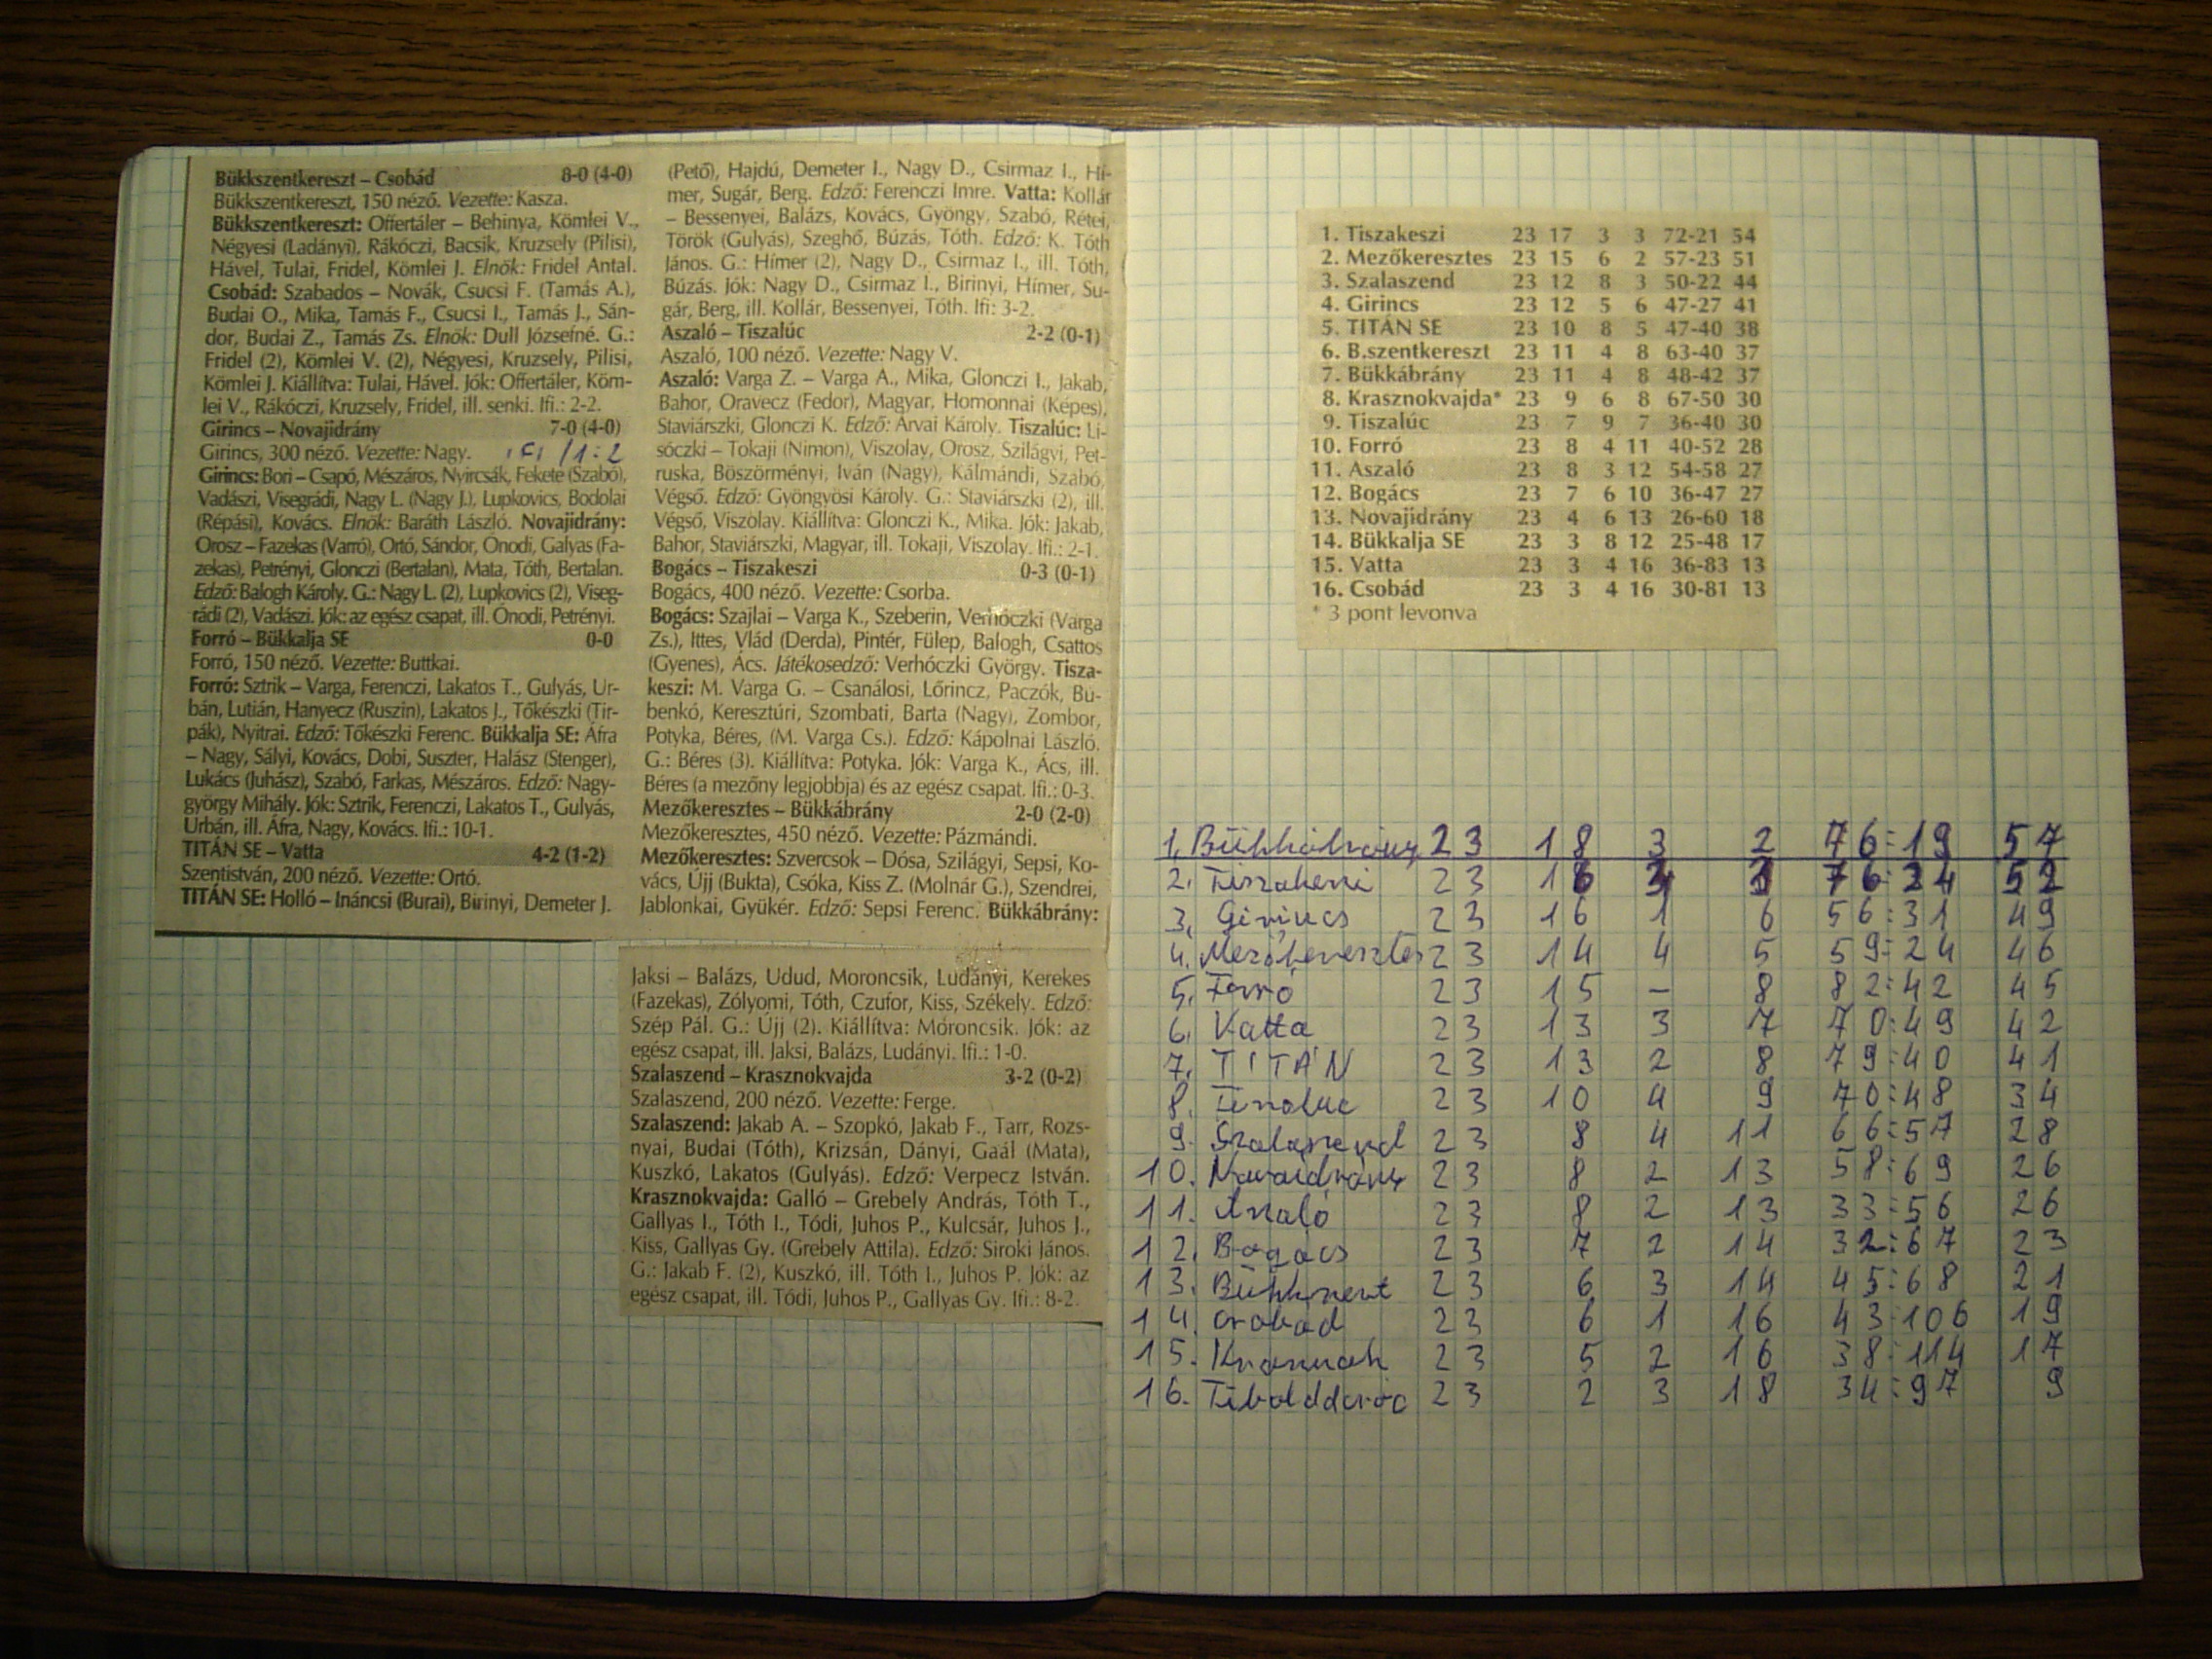 Bükkszentkereszt – Csobád 8-0 (4-0)
Bükkszentkereszt, 150 néző. Vezette: Kasza.
Bükkszentkereszt: Offertáler – Behinya, Kömlei V.,
Négyesi (Ladányi), Rákóczi, Bacsik, Kruzsely (Pilisi),
Hável, Tulai, Fridel, Kömlei J. Elnök: Fridel Antal.
Csobád: Szabados – Novák, Csucsi F. (Tamás A.),
Budai O., Mika, Tamás F., Csucsi I., Tamás J., Sán-
dor, Budai Z., Tamás Zs. Elnök: Dull Józsefné. G.:
Fridel (2), Kömlei V. (2), Négyesi, Kruzsely, Pilisi,
Kömlei J. Kiállítva: Tulai, Hável. Jók: Offertáler, Köm-
lei V., Rákóczi, Kruzsely, Fridel, ill. senki. Ifi.: 2-2.
Girincs – Novajidrány 7-0 (4-0)
Girincs, 300 néző. Vezette: Nagy. ifi 1:2
Girincs: Bori – Csapó, Mészáros, Nyircsák, Fekete (Szabó),
Vadászi, Visegrádi, Nagy L. (Nagy J.), Lupkovics, Bodolai
(Répási), Kovács. Elnök: Baráth László. Novajidrány:
Orosz – Fazekas (Varró), Ortó, Sándor, Ónodi, Galyas (Fa-
zekas), Petrényi, Glonczi (Bertalan), Mata, Tóth, Bertalan.
Edző: Balogh Károly. G.: Nagy L. (2), Lupkovics (2), Viseg-
rádi (2), Vadászi. Jók: az egész csapat, ill. Ónodi, Petrényi.
Forró – Bükkalja SE 0-0
Forró, 150 néző. Vezette: Buttkai.
Forró: Sztrik – Varga, Ferenczi, Lakatos T., Gulyás, Ur-
bán, Lutián, Hanyecz (Ruszin), Lakatos J., Tőkészki (Tir-
pák), Nyitrai. Edző: Tőkészki Ferenc. Bükkalja SE: Áfra
– Nagy, Sályi, Kovács, Dobi, Suszter, Halász (Stenger),
Lukács (Juhász), Szabó, Farkas, Mészáros. Edző: Nagy-
györgy Mihály. Jók: Sztrik, Ferenczi, Lakatos T., Gulyás,
Urbán, ill. Áfra, Nagy, Kovács. Ifi.: 10-1.
TITÁN SE – Vatta 4-2 (1-2)
Szentistván, 200 néző. Vezette: Ortó.
TITÁN SE: Holló – Ináncsi (Burai), Birinyi, Demeter J.
(Pető), Hajdú, Demeter I., Nagy D., Csirmaz I., Hí-
mer, Sugár, Berg. Edző: Ferenczi Imre. Vatta: Kollár
– Bessenyei, Balázs, Kovács, Gyöngy, Szabó, Rétei,
Török (Gulyás), Szeghő, Búzás, Tóth. Edző: K. Tóth
János. G.: Hímer (2), Nagy D., Csirmaz I., ill. Tóth,
Búzás. Jók: Nagy D., Csirmaz I., Birinyi, Hímer, Su-
gár, Berg, ill. Kollár, Bessenyei, Tóth. Ifi: 3-2.
Aszaló – Tiszalúc 2-2 (0-1)
Aszaló, 100 néző. Vezette: Nagy V.
Aszaló: Varga Z. – Varga A., Mika, Glonczi I., Jakab,
Bahor, Oravecz (Fedor), Magyar, Homonnai (Képes),
Staviárszki, Glonczi K. Edző: Árvai Károly. Tiszalúc: Li-
sóczki – Tokaji (Nimon), Viszolay, Orosz, Szilágyi, Pet-
ruska, Böszörményi, Iván (Nagy), Kálmándi, Szabó,
Végső. Edző: Gyöngyösi Károly. G.: Staviárszki (2), ill.
Végső, Viszolay. Kiállítva: Glonczi K., Mika. Jók: Jakab,
Bahor, Staviárszki, Magyar, ill. Tokaji, Viszolay. Ifi.: 2-1.
Bogács – Tiszakeszi 0-3 (0-1)
Bogács, 400 néző. Vezette: Csorba.
Bogács: Szajlai – Varga K., Szeberin, Verhóczki (Varga
Zs.), Ittes, Vlád (Derda), Pintér, Fülep, Balogh, Csattos
(Gyenes), Ács. Játékosedző: Verhóczki György. Tisza-
keszi: M. Varga G. – Csanálosi, Lőrincz, Paczók, Bu-
benkó, Keresztúri, Szombati, Barta (Nagy), Zombor,
Potyka, Béres, (M. Varga Cs.). Edző: Kápolnai László.
G.: Béres (3). Kiállítva: Potyka. Jók: Varga K., Ács, ill.
Béres (a mezőny legjobbja) és az egész csapat. Ifi.: 0-3.
Mezőkeresztes – Bükkábrány 2-0 (2-0)
Mezőkeresztes, 450 néző. Vezette: Pázmándi.
Mezőkeresztes: Szvercsok – Dósa, Szilágyi, Sepsi, Ko-
vács, Újj (Bukta), Csóka, Kiss Z. (Molnár G.), Szendrei,
Jablonkai, Gyükér. Edző: Sepsi Ferenc. Bükkábrány:
Jaksi – Balázs, Udud, Moroncsik, Ludányi, Kerekes
(Fazekas), Zólyomi, Tóth, Czufor, Kiss, Székely. Edző:
Szép Pál. G.: Újj (2). Kiállítva: Móroncsik. Jók: az
egész csapat, ill. Jaksi, Balázs, Ludányi. Ifi.: 1-0.
Szalaszend – Krasznokvajda 3-2 (0-2)
Szalaszend, 200 néző. Vezette: Ferge.
Szalaszend: Jakab A. – Szopkó, Jakab F., Tarr, Rozs-
nyai, Budai (Tóth), Krizsán, Dányi, Gaál (Mata),
Kuszkó, Lakatos (Gulyás). Edző: Verpecz István.
Krasznokvajda: Galló – Grebely András, Tóth T.,
Gallyas I., Tóth I., Tódi, Juhos P., Kulcsár, Juhos J.,
Kiss, Gallyas Gy. (Grebely Attila). Edző: Siroki János.
G.: Jakab F. (2), Kuszkó, ill. Tóth I., Juhos P. Jók: az
egész csapat, ill. Tódi, Juhos P., Gallyas Gy. Ifi.: 8-2.
1. Tiszakeszi 23 17 3 3 72-21 54
2. Mezőkeresztes 23 15 6 2 57-23 51
3. Szalaszend 23 12 8 3 50-22 44
4. Girincs 23 12 5 6 47-27 41
5. TITÁN SE 23 10 8 5 47-40 38
6. B.szentkereszt 23 11 4 8 63-40 37
7. Bükkábrány 23 11 4 8 48-42 37
8. Krasznokvajda* 23 9 6 8 67-50 30
9. Tiszalúc 23 7 9 7 36-40 30
10. Forró 23 8 4 11 40-52 28
11. Aszaló 23 8 3 12 54-58 27
12. Bogács 23 7 6 10 36-47 27
13. Novajidrány 23 4 6 13 26-60 18
14. Bükkalja SE 23 3 8 12 25-48 17
15. Vatta 23 3 4 16 36-83 13
16. Csobád 23 3 4 16 30-81 13
* 3 pont levonva
1. Bükkábrány 23 18 3 2 76:19 57
2. Tiszakeszi 23 16 76:24 52
3. Girincs 23 16 1 6 56:31 49
4. Mezőkeresztes 23 14 4 5 59:24 46
5. Forró 23 15 – 8 82:42 45
6. Vatta 23 13 3 7 70:49 42
7. TITÁN 23 13 2 8 79:40 41
8. Tiszaluc 23 10 4 9 70:48 34
9. Szalaszend 23 8 4 11 66:57 28
10. Novaidrány 23 8 2 13 58:69 26
11. Aszaló 23 8 2 13 33:56 26
12. Bogács 23 7 2 14 32:67 23
13. Bükkszent 23 6 3 14 45:68 21
14. Csobád 23 6 1 16 43:106 19
15. Krasznok 23 5 2 16 38:114 17
16. Tibolddaróc 23 2 3 18 34:97 9